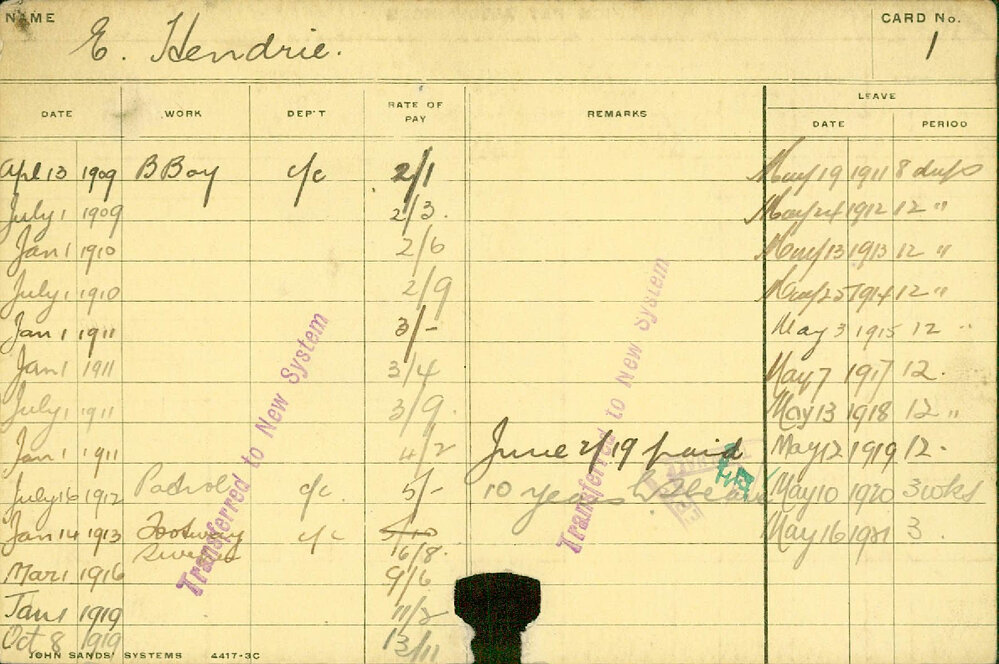 NAME CARD No.
E. Hendrie. 1
DATE WORK DEP'T RATE OF PAY REMARKS LEAVE
DATE PERIOD
Apl 13 1909 B Boy c/c 2/1 May 19 1911 8 days
July 1 1909 2/3. May 24 1912 12 "
Jan 1 1910 2/6 May 13 1913 12 "
July 1 1910 2/9 May 25 1914 12 "
Jan 1 1911 3/- May 3 1915 12 "
Jan 1 1911 3/4 May 7 1917 12.
July 1 1911 3/9. May 13 1918 12 "
Jan 1 1911 4/2 June 2/19 paid May 12 1919 12.
July 16 1912 Patrol c/c. 5/- 10 years May 10 1920 3 wks
Jan 14 1913 Footway c/c May 16 1921 3.
16/8.
Mar 1 1916 9/6
Jan 1 1919 11/2
Oct 8 1919 13/11
Transferred to New System
Transferred to New System
JOHN SANDS' SYSTEMS 4417-3C